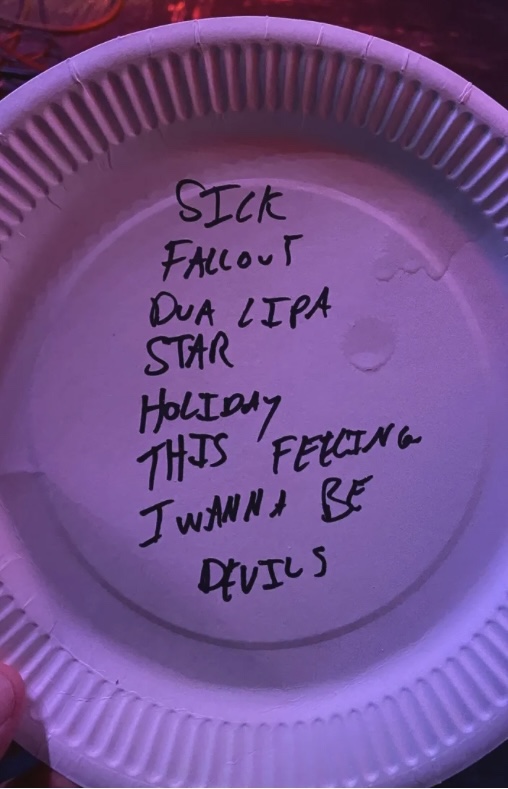 SICK
FALLOUT
DUA LIPA
STAR
HOLIDAY
THIS FEELING
I WANNA BE
DEVILS